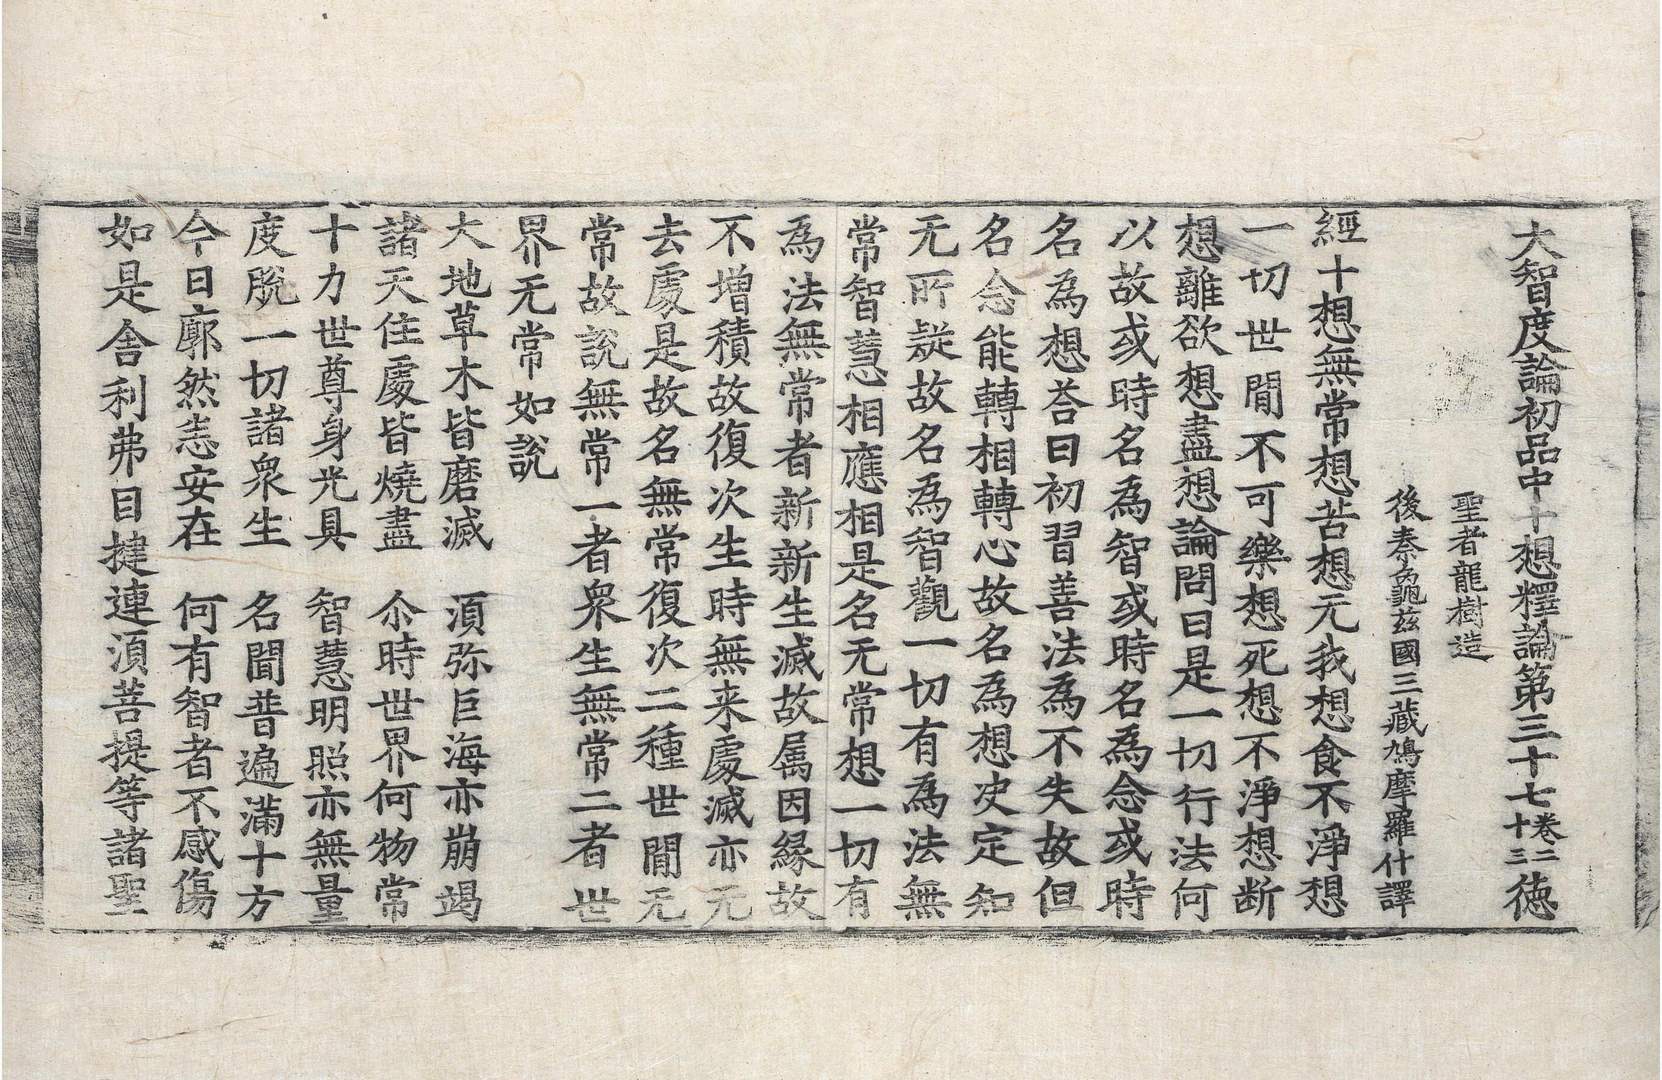 大智度論初品中十想釋論第三十七卷二十三德
聖者龍樹造
後秦龜茲國三藏鳩摩羅什譯
經十想無常想苦想无我想食不淨想
一切世閒不可樂想死想不淨想断
想離欲想盡想論問曰是一切行法何
以故或時名為智或時名為念或時
名為想荅曰初習善法為不失故但
名念能轉相轉心故名為想决定知
无所疑故名為智觀一切有為法無
常智慧相應相是名无常想一切有
為法無常者新新生滅故属因緣故
不增積故復次生時無来處滅亦无
去處是故名無常復次二種世閒无
常故說無常一者衆生無常二者世
界无常如說
大地草木皆磨滅　湏弥巨海亦崩竭
諸天住處皆燒盡　尒時世界何物常
十力世尊身光具　智慧明照亦無量
度脫一切諸衆生　名聞普遍滿十方
今日廓然悉安在　何有智者不感傷
如是舍利弗目揵連湏菩提等諸聖